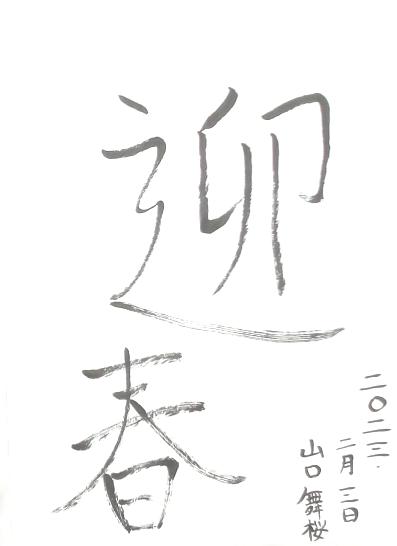 迎春
二〇二三.
二月三日
山口舞桜